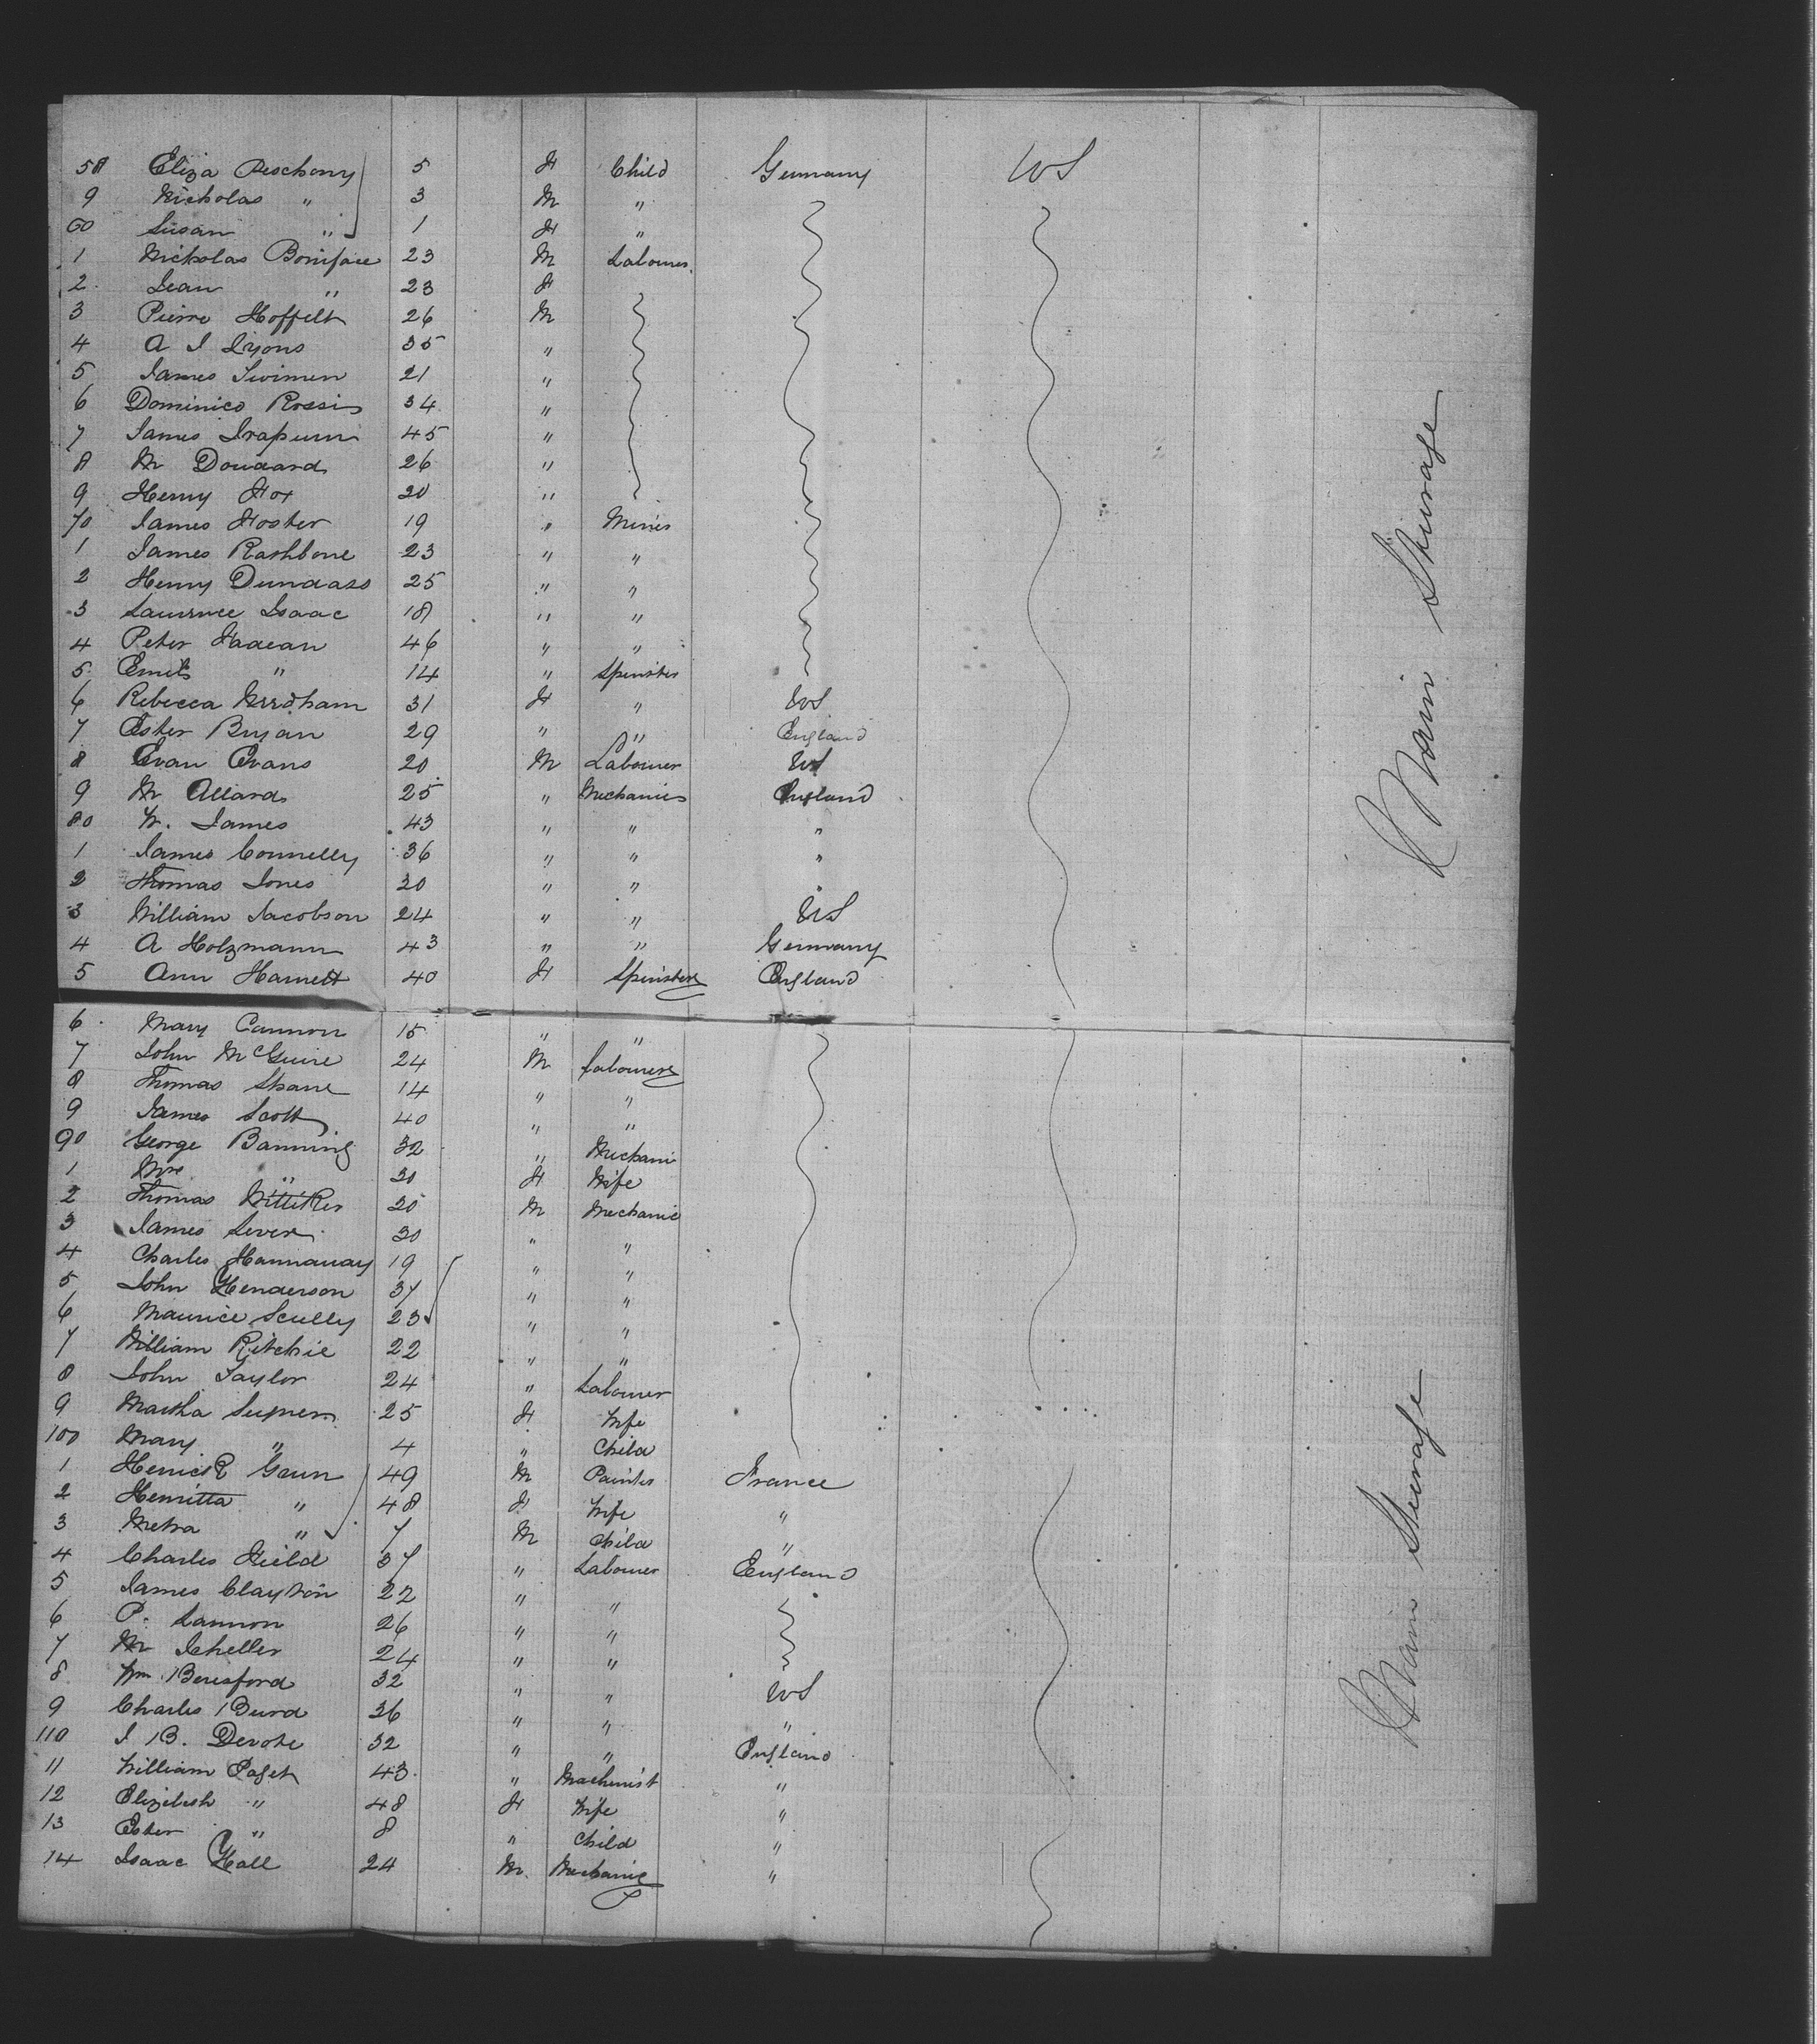 58 Eliza Peschony 5 F Child Germany US
9 Nicholas " 3 M "
60 Susan " 1 F "
1 Nicholas Boniface 23 M Labourer
2 Jean " 23 F
3 Pierre Hoffelt 26 M
4 A J Lyons 35 "
5 James 21 "
6 Dominico Rossi 34 "
7 James 45 "
8 M Douaard 26 "
9 Henry Fox 20 "
70 James Foster 19 " Miner
1 James Rathbone 23 " "
2 Henry Dundass 25 " "
3 Laurence Isaac 18 " "
4 Peter Fadean 46 " "
5 Emils " 14 " Spinster
6 Rebecca Needham 31 F " US
7 Ester Bryan 29 " " England
8 Evan Evans 20 M Labourer US
9 M Allard 25 " Mechanics England
80 W. James 43 " " "
1 James Connelly 36 " " "
2 Thomas Jones 20 " "
3 William Jacobson 24 " " US
4 A Holzmann 43 " " Germany
5 Ann Harnett 40 F Spinster England
6 Mary Cannon 15 " "
7 John McGuire 24 M Labourer
8 Thomas Shane 14 " "
9 James Scott 40 " "
90 George Banning 32 " Mechani
1 Mrs " 30 F Wife
2 Thomas Wittiker 20 M Mechanic
3 James Lever 30 " "
4 Charles Hannaway 19 " "
5 John Henderson 37 " "
6 Maurice Scully 23 " "
7 William Ritchie 22 " "
8 John Taylor 24 " Labourer
9 Martha 25 F Wife
100 Mary " 4 " Child
1 Gaun 49 M Painter France
2 Henritta " 48 F Wife "
3 Metra " 7 M Child "
4 Charles Field 37 " Labourer England
5 James Clayton 22 " "
6 P. Lannon 26 " "
7 M Scheller 24 " "
8 Wm Beresford 32 " " US
9 Charles Burd 36 " " "
110 J B. Devote 32 " " England
11 William Paget 43 " Machinist "
12 Elizibeth " 48 F Wife "
13 Ester " 8 " Child "
14 Isaac Hall 24 M Mechanic "
Main Steerage
Main Steerage